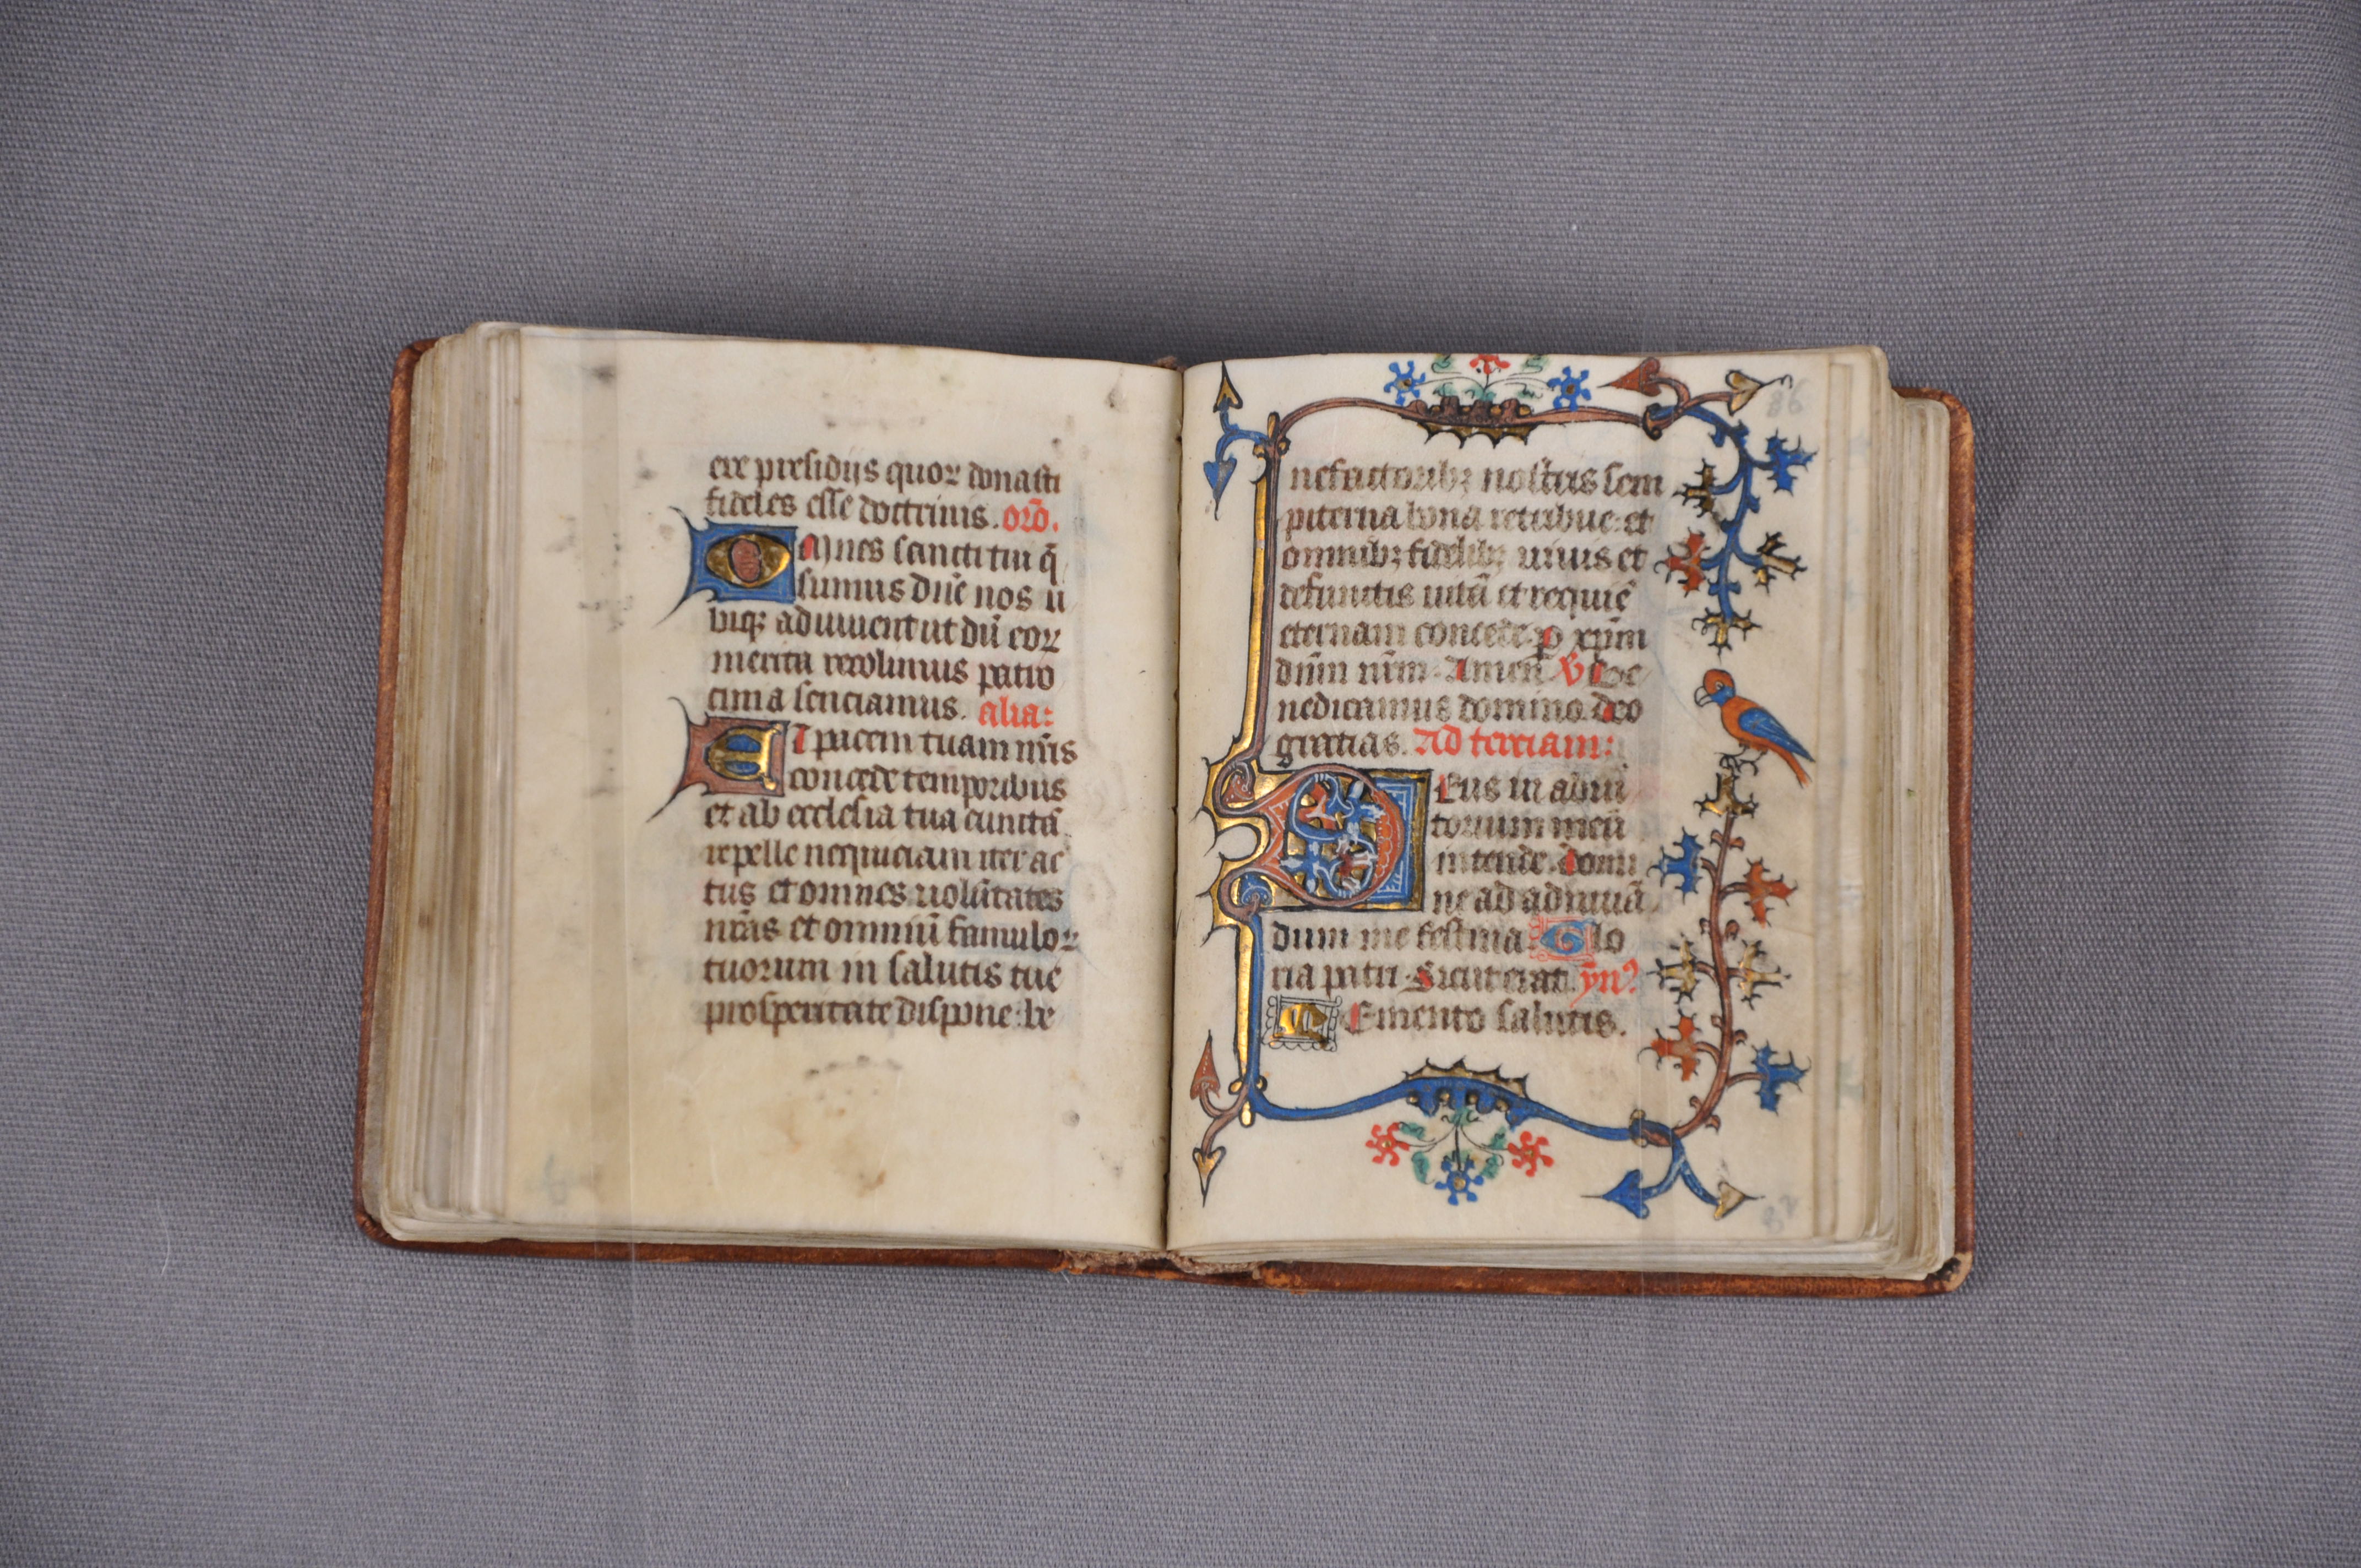 ere presidiis quoꝝ donasti
fideles esse doctrinis. orō.
Omnes sancti tui q̄
sumus dn̄e nos u
biqꝫ adiuuent ut dū eoꝝ
merita recolimus patro
cinia senciamus. alia:
Et pacem tuam nr̄is
concede temporibus
et ab ecclesia tua cunctā
repelle nequiciam iter ac
tus et omnes uolūtates
nr̄as et omniū famuloꝝ
tuorum in salutis tue
prosperitate dispone: be
86
nefactoribꝫ nostris sem
piterna bona retribue: et
omnibꝫ fidelibꝫ uiuis et
defunctis uitā et requiē
eternam concede. ꝑ xp̄m
dn̄m nr̄m. Amen. ꝟ Be
nedicamus domino. deo
gratias. Ad terciam:
Deus in adiu
torium meū
intende. Domi
ne ad adiuuā
dum me festina. Glo
ria patri. Sicut erat. yn̄⁹
Memento salutis.